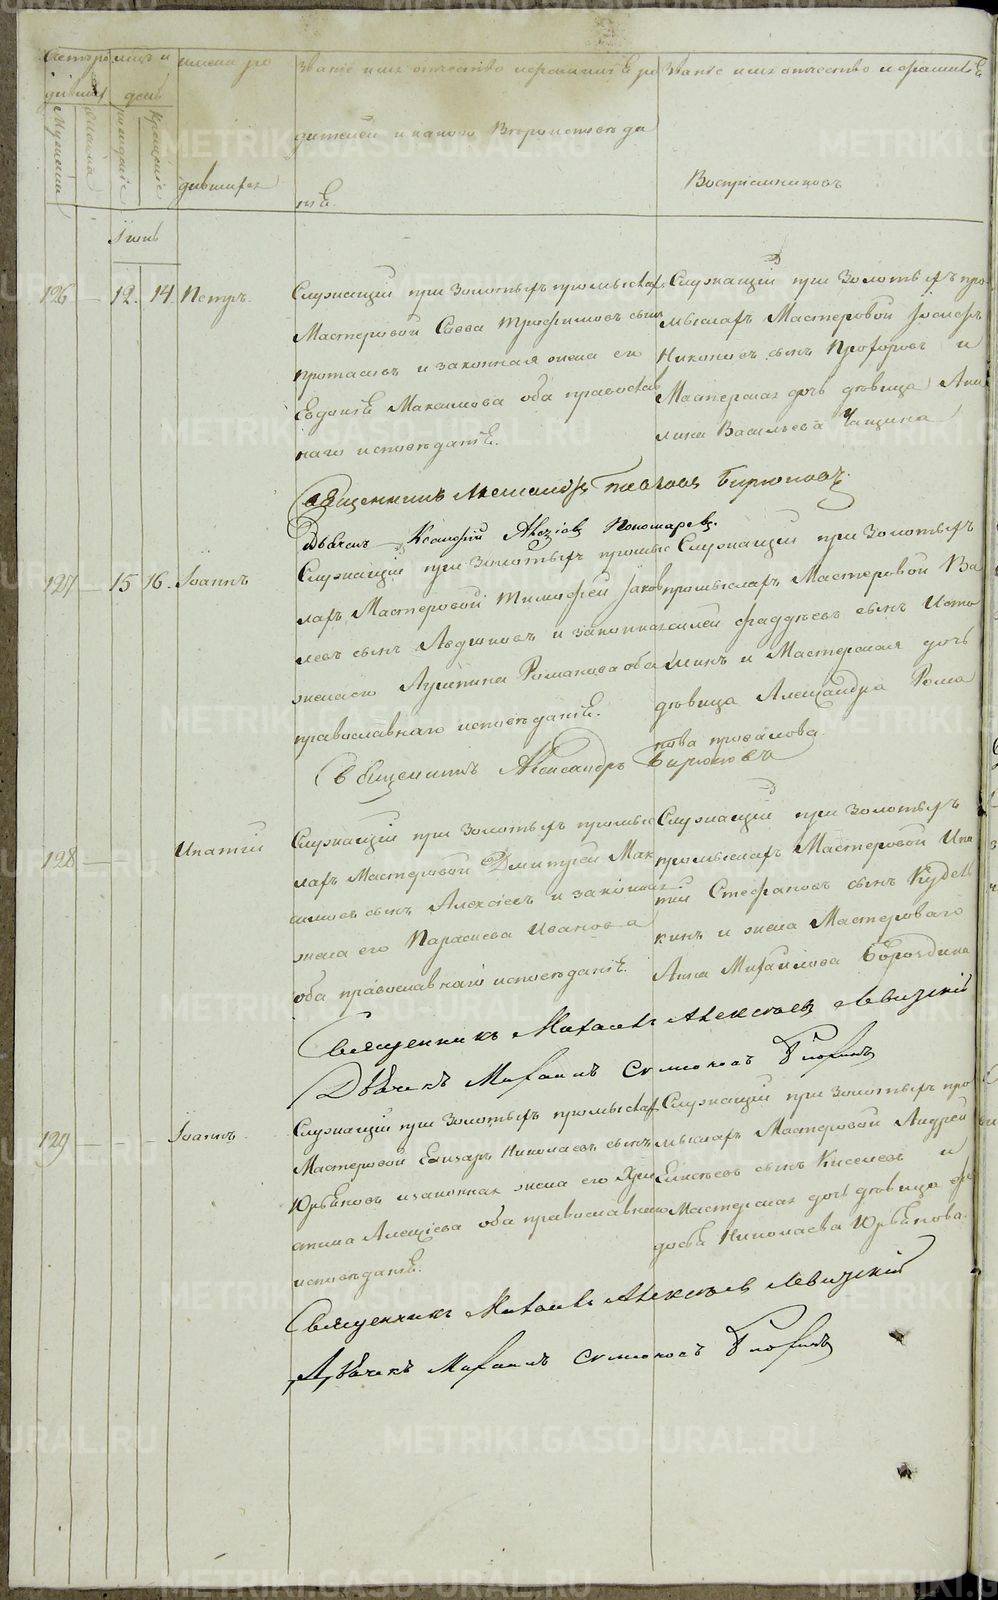 METRIKI.GASO-URAL.RU
имена ро
Званіе имя отчество и фамилія ро
Званіе имя отчество и фамилія
день
дителей и какого Вѣроисповѣда
нія.
дившихся
Воспріемниковъ
Іюнь
126 — 12. 14 Петръ.
Служащій при Золотыхъ промыслах
Мастеровой Савва Трофимовъ сынъ
Протасовъ и законная жена его
Евдокія Максимова оба православ
наго исповѣданія.
Служащій при Золотыхъ про
мыслахъ Мастеровой Іосифъ
Никоновъ сынъ Прохоровъ и
Мастерская дочь дѣвица Аки
лина Васильева Чащина
Священникъ Александръ Павловъ Бирюковъ.
Дьячекъ Ксенофій Алексіевъ Пономаревъ.
127 — 15 16. Іоаннъ
Служащій при Золотыхъ промыс
лахъ Мастеровой Тимофей Яков
левъ сынъ Авдюковъ и законная
жена его Лукерья Романова оба
православнаго исповѣданія.
Служащій при Золотыхъ
промыслахъ Мастеровой Ва
силей Фаддѣевъ сынъ Исто
минъ и Мастерская дочь
дѣвица Александра Рома
нова
Священникъ Александръ Бирюковъ
128 — Ипатій
Служащій при Золотыхъ промыс
лахъ Мастеровой Дмитрій Мак
симовъ сынъ Алексѣевъ и законная
жена его Параскева Иванова
оба православнаго исповѣданія.
Служащій при Золотыхъ
промыслахъ Мастеровой Ипа
тій Стефановъ сынъ Кудел
кинъ и жена Мастероваго
Анна Михайлова Бороздина
Священникъ Михаилъ Алексѣевъ Левицкій
Дьячекъ Михаилъ Симоновъ
129 — — Іоаннъ.
Служащій при Золотыхъ промыслах
Мастеровой Елизаръ Николаевъ сынъ
Юрьевъ и законная жена его Хри
стина Алексіева оба православнаго
исповѣданія.
Служащій при Золотыхъ про
мыслахъ Мастеровой Андрей
Елисѣевъ сынъ Киселевъ и
Мастерская дочь дѣвица Фе
досья Николаева
Священникъ Михаилъ Алексѣевъ Левицкій
Дьячекъ Михаилъ Симоновъ